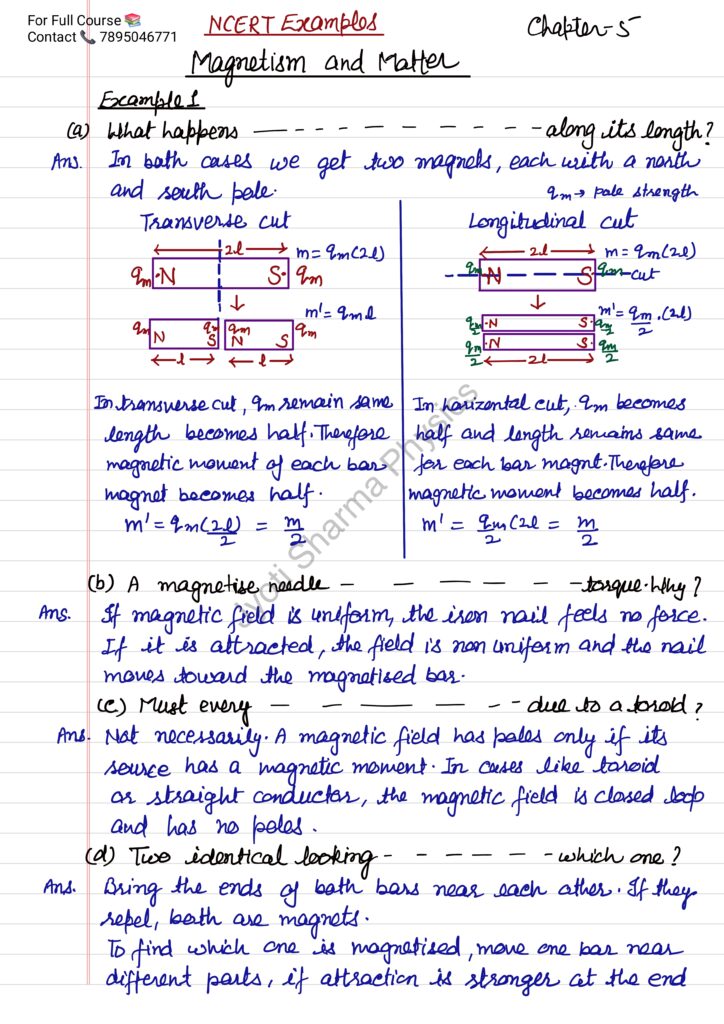 For Full Course 📚
Contact 📞 7895046771
NCERT Examples
Chapter-5
Magnetism and Matter
Example 1
(a) What happens — - - - — — — - - - along its length?
Ans. In both cases we get two magnets, each with a north
and south pole.
qm → pole strength
Transverse cut
2l
m = qm(2l)
qm N S qm
m' = qml
qm N qm S qm N S qm
l l
In transverse cut, qm remain same
length becomes half. Therefore
magnetic moment of each bar
magnet becomes half.
m' = qm(2l)/2 = m/2
Longitudinal cut
2l
m = qm(2l)
qm N S qm cut
m' = qm/2 .(2l)
qm/2 N S qm/2
qm/2 N S qm/2
2l
In horizontal cut, qm becomes
half and length remains same
for each bar magnt. Therefore
magnetic moment becomes half.
m' = qm/2 (2l = m/2
Jyoti Sharma Physics
(b) A magnetise needle - — — — - - torque. Why?
Ans. If magnetic field is uniform, the iron nail feels no force.
If it is attracted, the field is non uniform and the nail
moves toward the magnetised bar.
(c) Must every — - — — — - - due to a toroid?
Ans. Not necessarily. A magnetic field has poles only if its
source has a magnetic moment. In cases like toroid
or straight conductor, the magnetic field is closed loop
and has no poles.
(d) Two identical looking - - - — — - which one?
Ans. Bring the ends of both bars near each other. If they
repel, both are magnets.
To find which one is magnetised, move one bar near
different parts, if attraction is stronger at the end